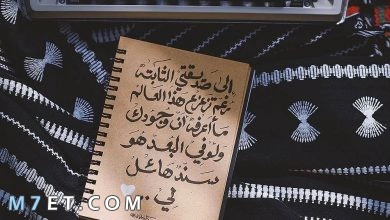 إلى صديقتي الثابتة
رغم تزعزع هذا العالم
ما أعرفه أن وجودك
ولو في البعد هو
سند هائل
لي
M7ET.COM